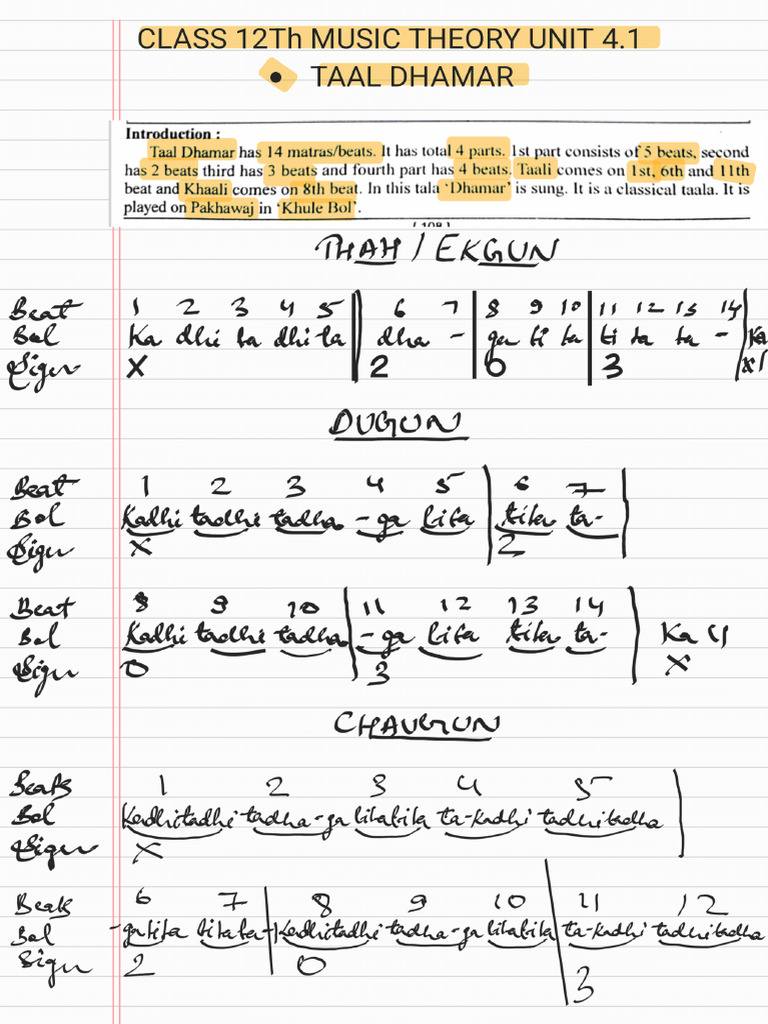 CLASS 12Th MUSIC THEORY UNIT 4.1
• TAAL DHAMAR
Introduction :
Taal Dhamar has 14 matras/beats. It has total 4 parts. 1st part consists of 5 beats, second
has 2 beats third has 3 beats and fourth part has 4 beats. Taali comes on 1st, 6th and 11th
beat and Khaali comes on 8th beat. In this tala 'Dhamar' is sung. It is a classical taala. It is
played on Pakhawaj in 'Khule Bol'.
THAH / EKGUN
Beat 1 2 3 4 5 | 6 7 | 8 9 10 | 11 12 13 14 |
Bol Ka dhi ta dhi ta | dha - | ga ti ta | ti ta ta - | Ka
Sign X 2 0 3 X
DUGUN
Beat 1 2 3 4 5 | 6 7 |
Bol Kadhi tadhi tadha -ga tita | tita ta- |
Sign X 2
Beat 8 9 10 | 11 12 13 14 |
Bol Kadhi tadhi tadha | -ga tita tita ta- | Ka
Sign 0 3 X
CHAUGUN
Beats 1 2 3 4 5 |
Bol Kadhitadhi tadha-ga titatita ta-Kadhi tadhitadha |
Sign X
Beats 6 7 | 8 9 10 | 11 12
Bol -gatita titata- | Kadhitadhi tadha-ga titatita | ta-Kadhi tadhitadha
Sign 2 0 3